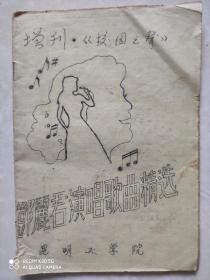 增刊·《校园之声》
鄧麗君演唱歌曲精选
昆明工学院
REDMI NOTE